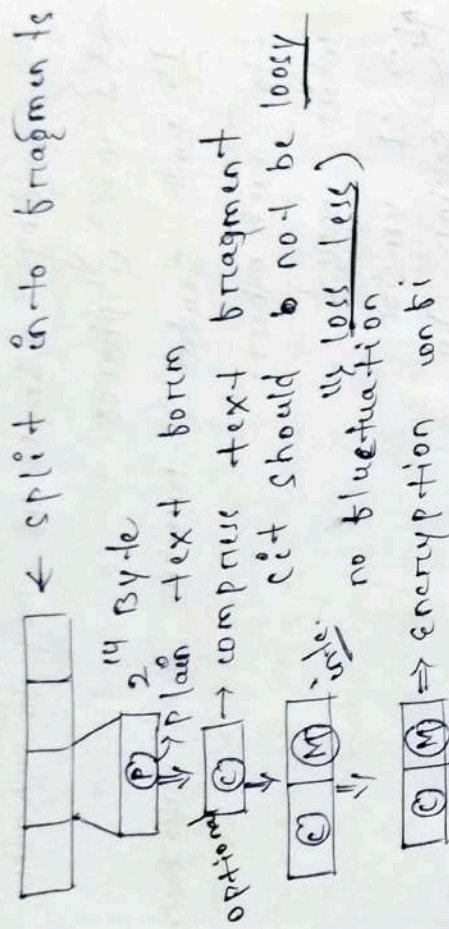 ← split in to fragments
2¹⁴ Byte
P → plain text form
optional C → comprise text fragment
(it should b not be loosy
is loss less)
C M - inte.
no fluctuation
C M ⇒ encryption confi